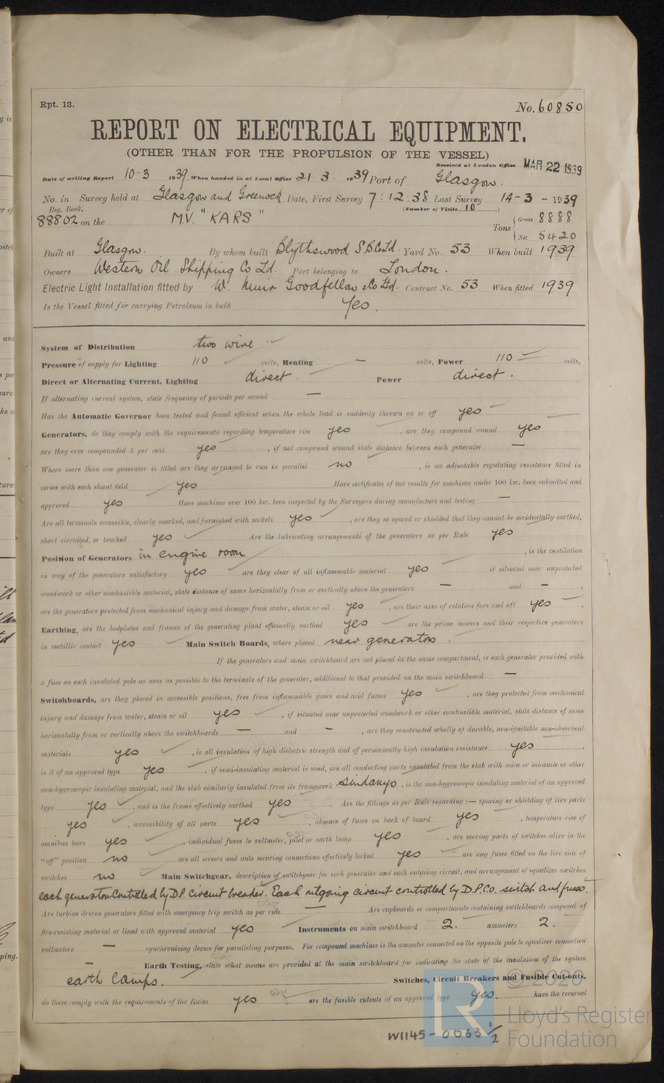 Rpt. 13.
No. 60850
REPORT ON ELECTRICAL EQUIPMENT.
(OTHER THAN FOR THE PROPULSION OF THE VESSEL)
Received at London Office MAR 22 1939
Date of writing Report 10-3 1939 When handed in at Local Office 21 3 1939 Port of Glasgow.
No. in Survey held at Glasgow and Greenock Date, First Survey 7:12:38 Last Survey 14-3-1939
Reg. Book. (Number of Visits 10)
88802 on the M.V. "KARS" Tons { Gross 8888
Net 5420
Built at Glasgow. By whom built Blythswood S.B. Co Ltd. Yard No. 53 When built 1939
Owners Western Oil Shipping Co Ltd. Port belonging to London.
Electric Light Installation fitted by W. Muir Goodfellow & Co Ltd. Contract No. 53 When fitted 1939
Is the Vessel fitted for carrying Petroleum in bulk Yes.
System of Distribution two wire
Pressure of supply for Lighting 110 volts, Heating — volts, Power 110 volts.
Direct or Alternating Current, Lighting direct. Power direct.
If alternating current system, state frequency of periods per second —
Has the Automatic Governor been tested and found efficient when the whole load is suddenly thrown on or off yes
Generators, do they comply with the requirements regarding temperature rise yes, are they compound wound yes
are they over compounded 5 per cent. yes, if not compound wound state distance between each generator —
Where more than one generator is fitted are they arranged to run in parallel no, is an adjustable regulating resistance fitted in
series with each shunt field yes Have certificates of test results for machines under 100 kw. been submitted and
approved yes Have machines over 100 kw. been inspected by the Surveyors during manufacture and testing —
Are all terminals accessible, clearly marked, and furnished with sockets yes, are they so spaced or shielded that they cannot be accidentally earthed,
short circuited, or touched yes Are the lubricating arrangements of the generators as per Rule yes
Position of Generators in engine room, is the ventilation
in way of the generators satisfactory yes are they clear of all inflammable material yes if situated near unprotected
woodwork or other combustible material, state distance of same horizontally from or vertically above the generators — and —
are the generators protected from mechanical injury and damage from water, steam or oil yes, are their axes of rotation fore and aft yes
Earthing, are the bedplates and frames of the generating plant efficiently earthed yes are the prime movers and their respective generators
in metallic contact yes Main Switch Boards, where placed near generators.
If the generators and main switchboard are not placed in the same compartment, is each generator provided with
a fuse on each insulated pole as near as possible to the terminals of the generator, additional to that provided on the main switchboard —
Switchboards, are they placed in accessible positions, free from inflammable gases and acid fumes yes, are they protected from mechanical
injury and damage from water, steam or oil yes, if situated near unprotected woodwork or other combustible material, state distance of same
horizontally from or vertically above the switchboards — and —, are they constructed wholly of durable, non-ignitable non-absorbent
materials yes, is all insulation of high dielectric strength and of permanently high insulation resistance yes,
is it of an approved type yes, if semi-insulating material is used, are all conducting parts insulated from the slab with mica or micanite or other
non-hygroscopic insulating material, and the slab similarly insulated from its framework Sindanyo, is the non-hygroscopic insulating material of an approved
type yes, and is the frame effectively earthed yes Are the fittings as per Rule regarding:— spacing or shielding of live parts
yes, accessibility of all parts yes, absence of fuses on back of board yes, temperature rise of
omnibus bars yes, individual fuses to voltmeter, pilot or earth lamp yes, are moving parts of switches alive in the
"off" position no are all screws and nuts securing connections effectively locked yes are any fuses fitted on the live side of
switches no Main Switchgear, description of switchgear for each generator and each outgoing circuit, and arrangement of equalizer switches
each generator controlled by D.P. circuit breaker. Each outgoing circuit controlled by D.P.C.O. switch and fuses.
Are turbine driven generators fitted with emergency trip switch as per rule — Are cupboards or compartments containing switchboards composed of
fire-resisting material or lined with approved material yes Instruments on main switchboard 2. ammeters 2.
voltmeters — synchronising device for paralleling purposes. For compound machines is the ammeter connected on the opposite pole to equalizer connection
— Earth Testing, state what means are provided at the main switchboard for indicating the state of the insulation of the system
earth lamps. Switches, Circuit Breakers and Fusible Cut-outs,
do these comply with the requirements of the Rules yes are the fusible cutouts of an approved type yes. have the reversed
© 2020
Lloyd's Register
Foundation
W1145-0033 1/2